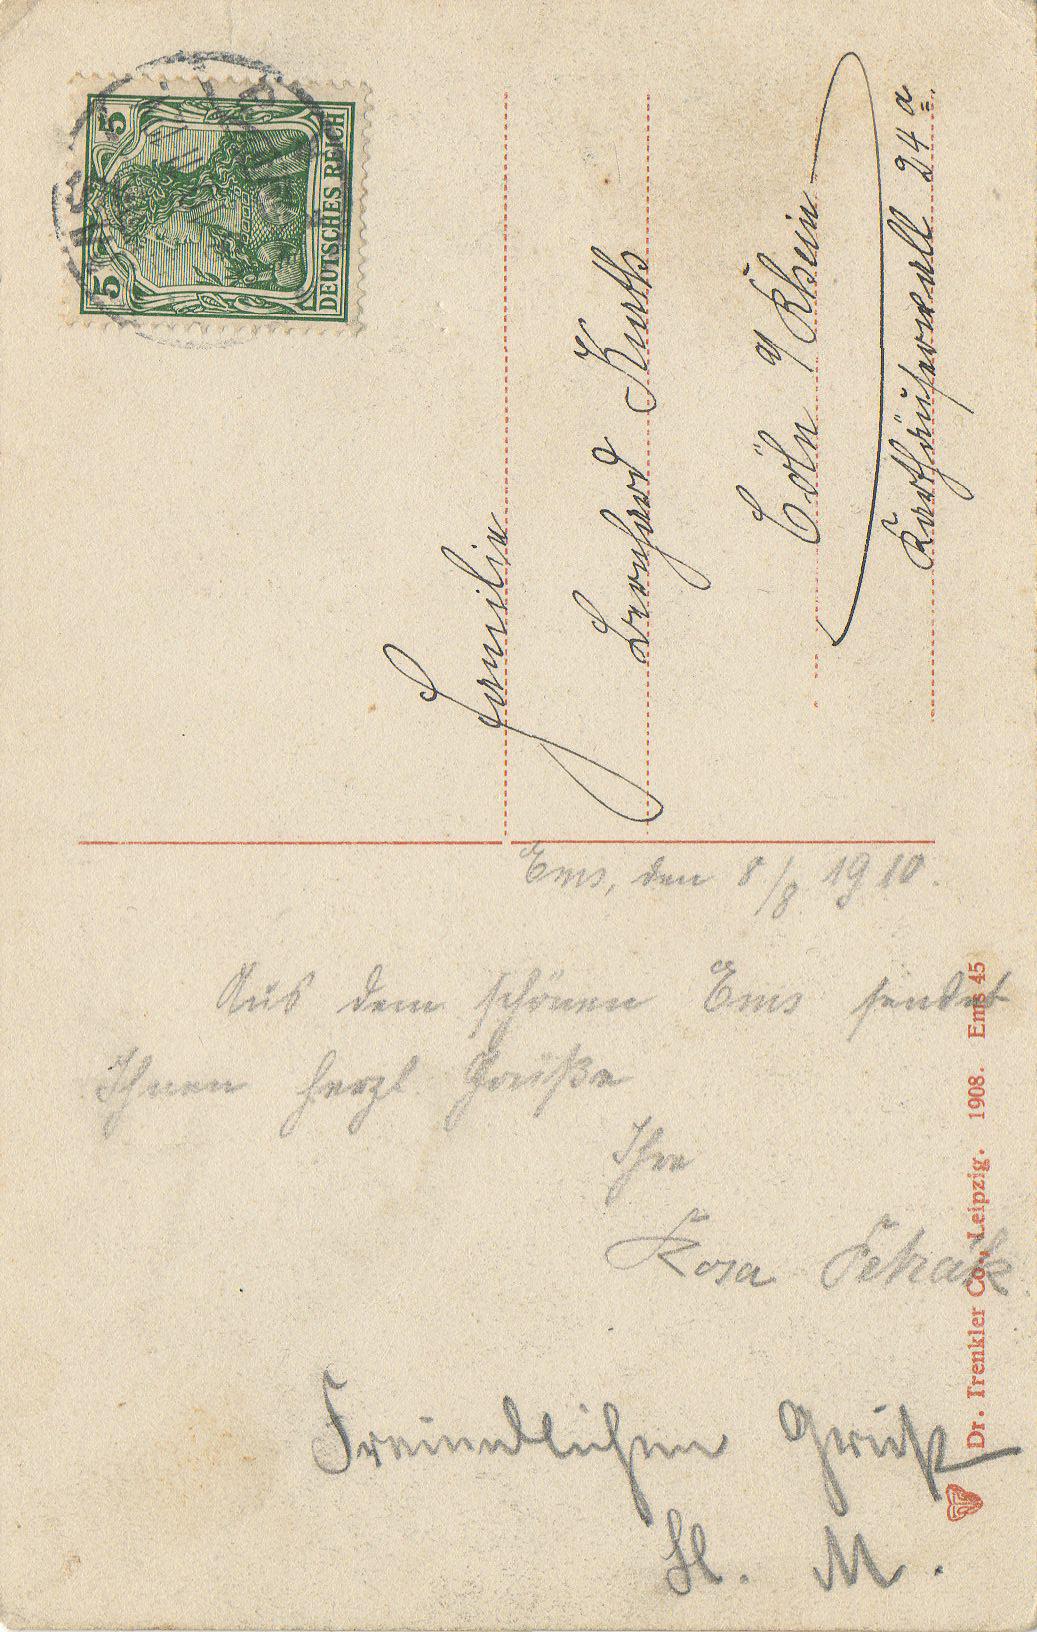 5 5
DEUTSCHES REICH
Familie
Bernhard Kurth
Cöln a/Rhein
Karthäuserwall 24 a
Ems, den 8/8 1910.
Aus dem schönen Ems sendet
Ihnen herzl Grüße
Ihre
Rosa
Freundlichen Gruß
M.
Dr. Trenkler Co., Leipzig. 1908. Ems 45